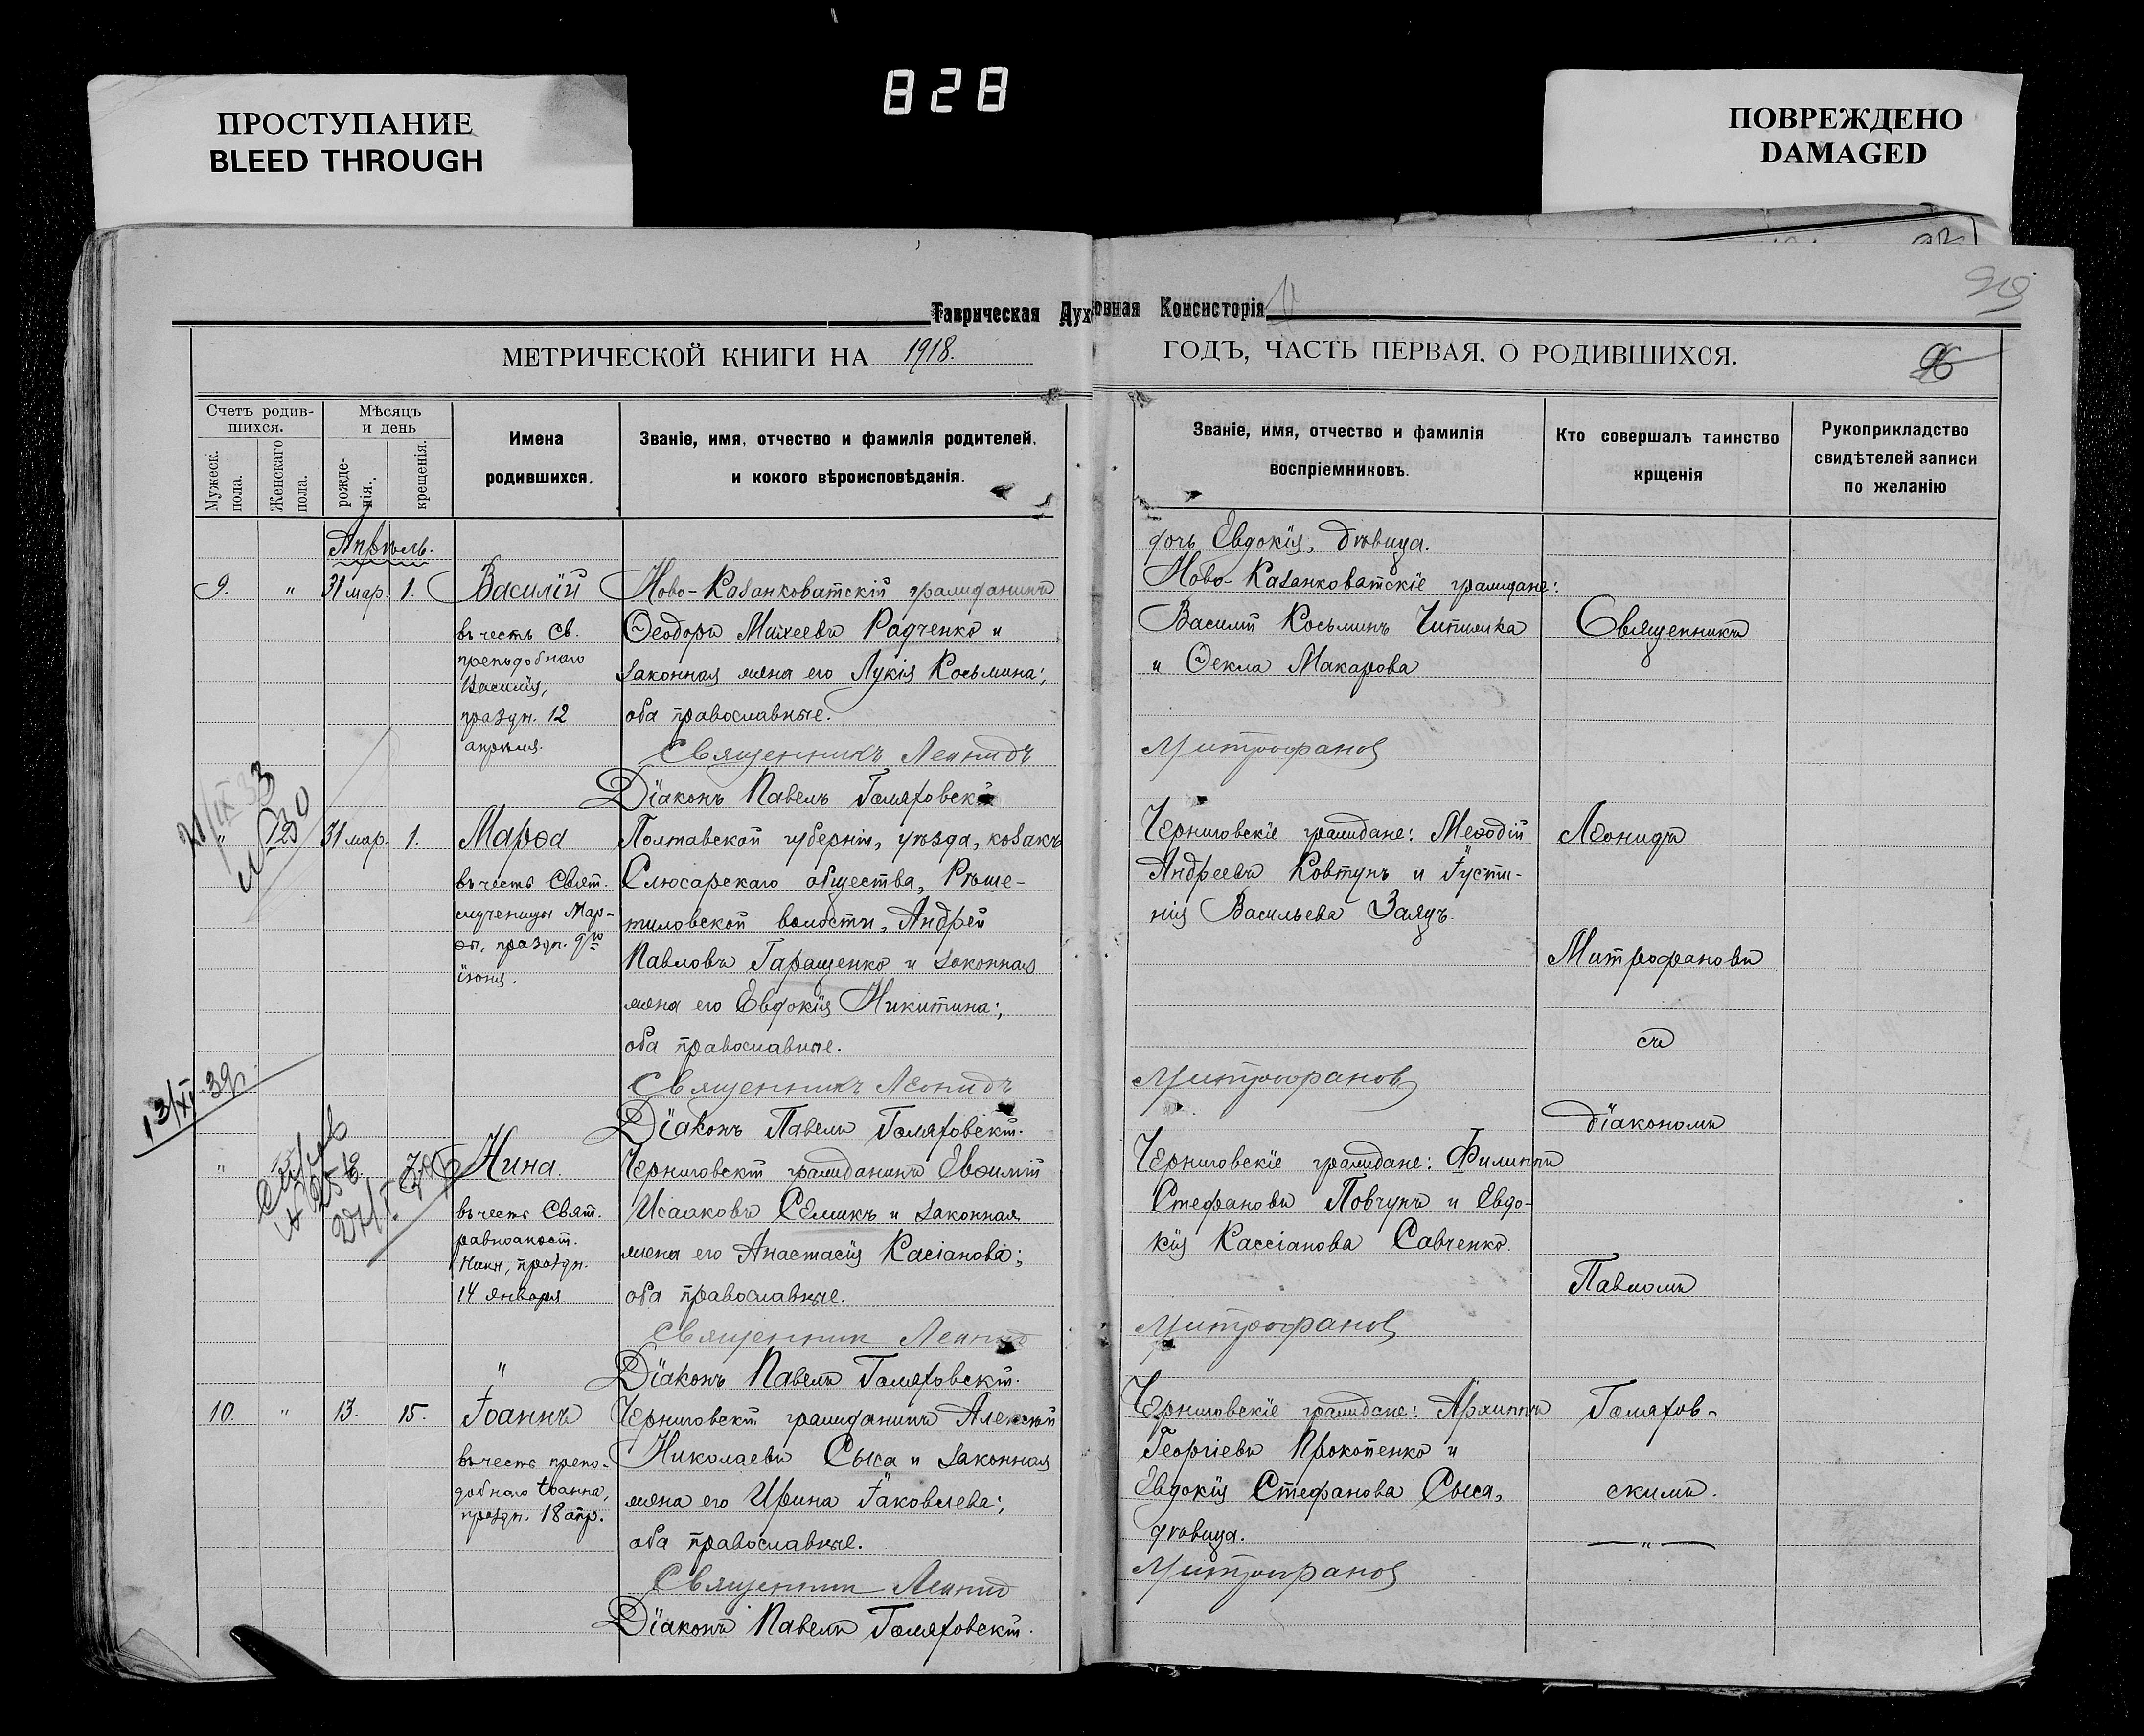 828
ПРОСТУПАНИЕ
BLEED THROUGH
ПОВРЕЖДЕНО
DAMAGED
Таврическая Духовная Консисторія
МЕТРИЧЕСКОЙ КНИГИ НА 1918.
ГОДЪ, ЧАСТЬ ПЕРВАЯ. О РОДИВШИХСЯ.
96
Счетъ родив-
шихся.
Мужеск.
пола.
Женскаго
пола.
Мѣсяцъ
и день
рожде-
нія.
крещенія.
Имена
родившихся.
Званіе, имя, отчество и фамилія родителей,
и кокого вѣроисповѣданія.
Званіе, имя, отчество и фамилія
воспріемниковъ.
Кто совершалъ таинство
крщенія
Рукоприкладство
свидѣтелей записи
по желанію
Апрѣль.
9. " 31 мар. 1.
Василій
въ честь св.
преподобнаго
Василія,
праздн. 12
апрѣля.
Ново-Казанковатскій гражданинъ
Ѳеодоръ Михеевъ Радченко и
законная жена его Лукія Косьмина;
оба православные.
Священникъ Леонидъ
Діаконъ Павелъ Голяховскій
дочь Евдокія, дѣвица.
Ново-Казанковатскіе граждане:
Василій Косьминъ
и Ѳекла Макарова
Митрофановъ
Священникъ
" 31 мар. 1.
Марѳа
въ честь Свят.
мученицы Мар-
ѳы, праздн. 9го
іюня.
Полтавской губерніи, уѣзда, козакъ
Слюсарскаго общества, Рѣше-
тиловской волости, Андрей
Павловъ Гаращенко и законная
жена его Евдокія Никитина;
оба православные.
Священникъ Леонидъ
Діаконъ Павелъ Голяховскій.
Черниговскіе граждане: Меѳодій
Андреевъ Ковтунъ и Іусти-
нія Васильева Заяцъ.
Митрофановъ
Леонидъ
Митрофановъ
съ
діакономъ
13/XI 39г.
"
Нина.
въ честь Свят.
равноапост.
Нины, праздн.
14 января
Черниговскій гражданинъ Евѳимій
Исааковъ Семикъ и законная
жена его Анастасія Касіанова;
оба православные.
Священник Леонид
"
Діаконъ Павелъ Голяховскій.
Черниговскіе граждане: Филиппъ
Стефановъ Повчунъ и Евдо-
кія Кассіанова Савченко.
Митрофановъ
Павломъ
10. " 13. 15.
Іоаннъ
въ честь препо-
добнаго Іоанна,
праздн. 18 апр.
Черниговскій гражданинъ Алексѣй
Николаевъ Сыса и законная
жена его Ирина Іаковлева;
оба православные.
Священник Леонид
Діаконъ Павелъ Голяховскій.
Черниговскіе граждане: Архиппъ
Георгіевъ Прокопенко и
Евдокія Стефанова Сыса,
дѣвица.
Митрофановъ
Голяхов-
скимъ.